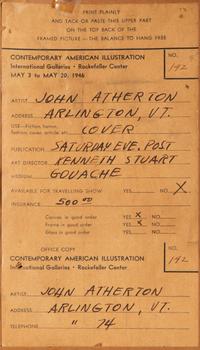 PRINT PLAINLY
AND TACK OR PASTE THIS UPPER PART
ON THE TOP BACK OF THE
FRAMED PICTURE — THE BALANCE TO HANG FREE
CONTEMPORARY AMERICAN ILLUSTRATION
International Galleries • Rockefeller Center
MAY 3 to MAY 20, 1946
NO. 142
ARTIST JOHN ATHERTON
ADDRESS ARLINGTON, VT.
USE—Fiction, humor, fashion, cover, article, etc. COVER
PUBLICATION SATURDAY EVE. POST
ART DIRECTOR KENNETH STUART
MEDIUM GOUACHE
AVAILABLE FOR TRAVELLING SHOW YES NO X
INSURANCE 500 00
Canvas in good order YES X NO
Frame in good order YES X NO
Glass in good order YES NO
OFFICE COPY
CONTEMPORARY AMERICAN ILLUSTRATION
International Galleries • Rockefeller Center
NO. 142
ARTIST JOHN ATHERTON
ADDRESS ARLINGTON, VT.
TELEPHONE " 74